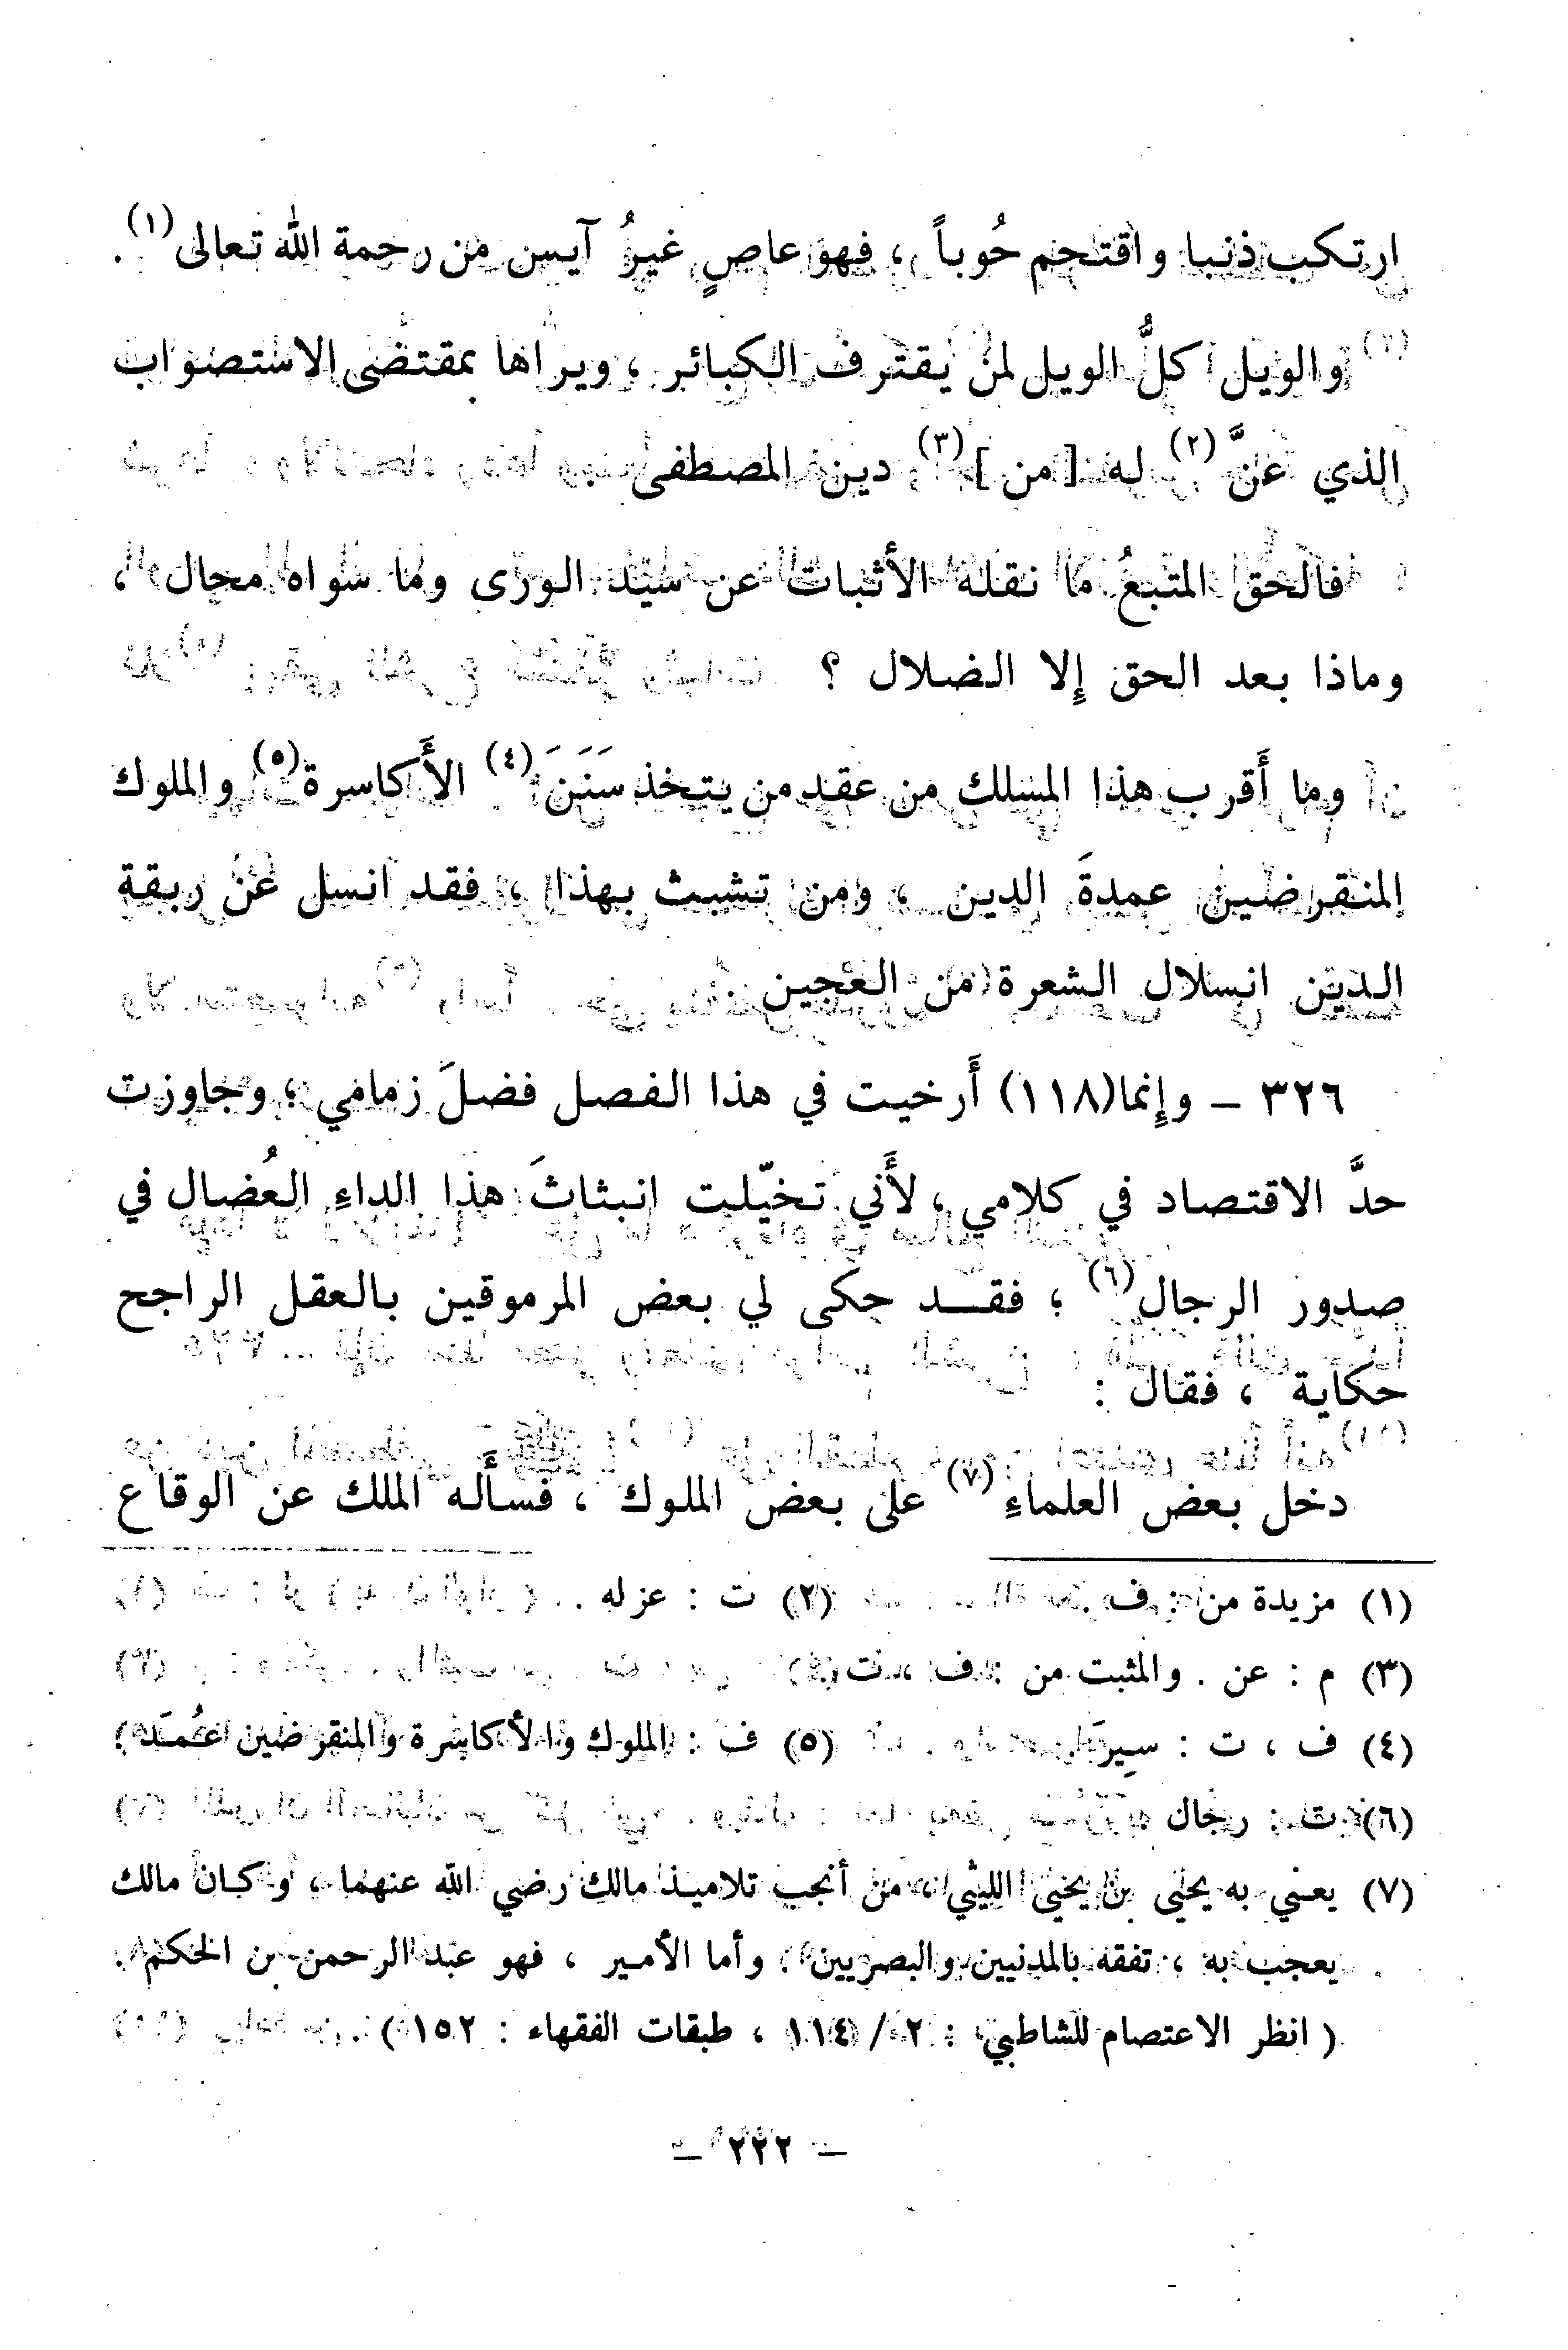 ارتكب ذنبا واقتحم حُوباً ، فهو عاصٍ غيرُ آيس من رحمة الله تعالى(١).
والويل كلُّ الويل لمن يقترف الكبائر ، ويراها بمقتضى الاستصواب
الذي عنَّ(٢) له [من](٣) دين المصطفى .
فالحق المتبعُ ما نقله الأثبات عن سيّد الورى وما سواه محال ،
وماذا بعد الحق إِلا الضلال ؟
وما أَقرب هذا المسلك من عقد من يتخذ سَنَنَ(٤) الأَكاسرة(٥) والملوك
المنقرضين عمدةَ الدين ، ومن تشبث بهذا ، فقد انسل عن ربقة
الدين انسلال الشعرة من العجين .
٣٢٦ – وإِنما(١١٨) أَرخيت في هذا الفصل فضلَ زمامي ؛ وجاوزت
حدَّ الاقتصاد في كلامي ، لأَني تخيّلت انبثاثَ هذا الداءِ العُضال في
صدور الرجال(٦) ؛ فقد حكى لي بعض المرموقين بالعقل الراجح
حكاية ، فقال :
دخل بعض العلماءِ(٧) على بعض الملوك ، فسأَله الملك عن الوقاع
(١) مزيدة من : ف . (٢) ت : عزله .
(٣) م : عن . والمثبت من : ف ، ت .
(٤) ف ، ت : سِيرَ . (٥) ف : الملوك والأكاسرة والمنقرضين عُمَد .
(٦) ت : رجال
(٧) يعني به يحيى بن يحيى الليثي ، من أنجب تلاميذ مالك رضي الله عنهما ، وكان مالك
يعجب به ، تفقه بالمدنيين والبصريين . وأما الأمير ، فهو عبد الرحمن بن الحكم .
( انظر الاعتصام للشاطبي : ٢ / ١١٤ ، طبقات الفقهاء : ١٥٢ ) .
– ٢٢٢ –